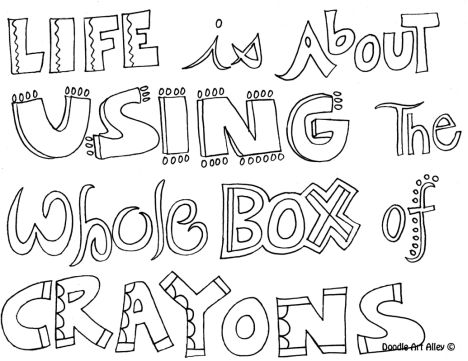 LIFE is AbouT
USING The
Whole BOX of
CRAYONS
Doodle Art Alley ©